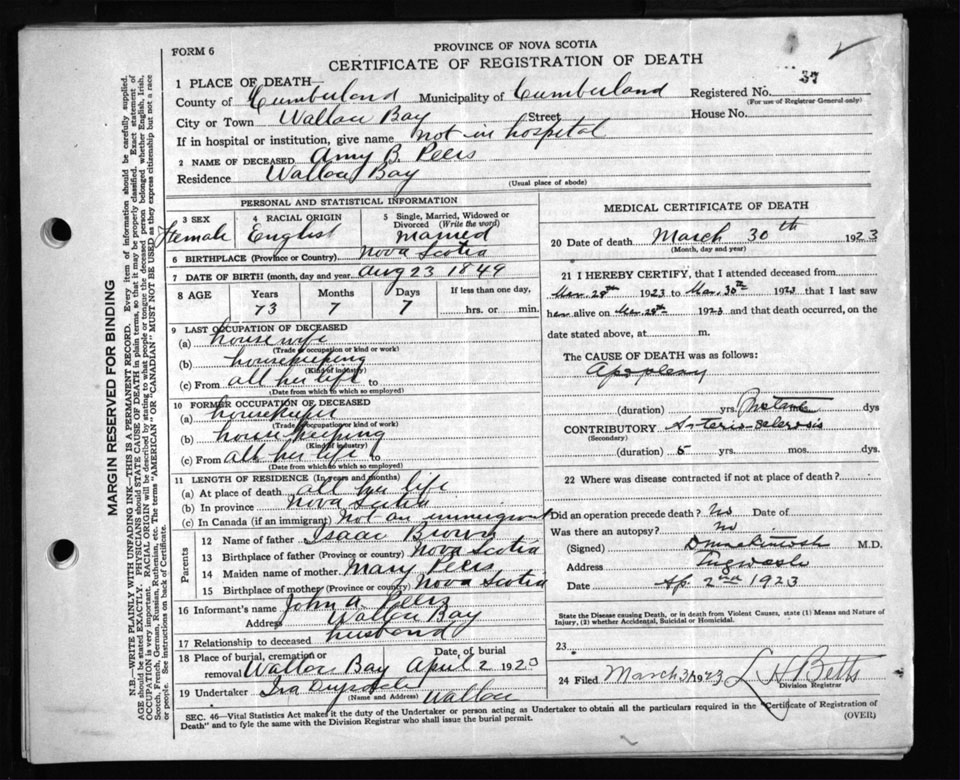 FORM 6
PROVINCE OF NOVA SCOTIA
CERTIFICATE OF REGISTRATION OF DEATH
37
1 PLACE OF DEATH—
County of Cumberland Municipality of Cumberland Registered No.
(For use of Registrar General only)
City or Town Wallace Bay Street House No.
If in hospital or institution, give name not in hospital
2 NAME OF DECEASED Amy B. Peers
Residence Wallace Bay
(Usual place of abode)
PERSONAL AND STATISTICAL INFORMATION
3 SEX
Female
4 RACIAL ORIGIN
English
5 Single, Married, Widowed or Divorced (Write the word)
Married
6 BIRTHPLACE (Province or Country) Nova Scotia
7 DATE OF BIRTH (month, day and year) Aug 23 1849
8 AGE Years Months Days If less than one day,
73 7 7 hrs. or min.
9 LAST OCCUPATION OF DECEASED
(a) housewife
(Trade or occupation or kind or work)
(b) housekeeping
(Kind of industry)
(c) From all her life to
(Date from which to which so employed)
10 FORMER OCCUPATION OF DECEASED
(a) housekeeper
(Trade or occupation or kind of work)
(b) house keeping
(Kind of industry)
(c) From all her life to
(Date from which to which so employed)
11 LENGTH OF RESIDENCE (In years and months)
(a) At place of death all her life
(b) In province Nova Scotia
(c) In Canada (if an immigrant) Not an immigrant
Parents
12 Name of father Isaac Brown
13 Birthplace of father (Province or country) Nova Scotia
14 Maiden name of mother Mary Peers
15 Birthplace of mother (Province or country) Nova Scotia
16 Informant's name John A. Peers
Address Wallace Bay
17 Relationship to deceased husband
18 Place of burial, cremation or removal Wallace Bay Date of burial April 2 1923
19 Undertaker Ira Wallace
(Name and Address)
MEDICAL CERTIFICATE OF DEATH
20 Date of death March 30th 1923
(Month, day and year)
21 I HEREBY CERTIFY, that I attended deceased from
Mar 28th 1923 to Mar. 30th 1923 that I last saw
her alive on Mar 28th 1923 and that death occurred, on the
date stated above, at m.
The CAUSE OF DEATH was as follows:
Apoplexy
(duration) yrs. dys
CONTRIBUTORY Arterio-sclerosis
(Secondary)
(duration) 5 yrs. mos. dys.
22 Where was disease contracted if not at place of death?
Did an operation precede death? No Date of
Was there an autopsy? No
(Signed) M.D.
Address Pugwash
Date Ap. 2nd 1923
State the Disease causing Death, or in death from Violent Causes, state (1) Means and Nature of Injury, (2) whether Accidental, Suicidal or Homicidal.
23
24 Filed March 31 1923 L H Betts
Division Registrar
SEC. 46—Vital Statistics Act makes it the duty of the Undertaker or person acting as Undertaker to obtain all the particulars required in the "Certificate of Registration of
Death" and to fyle the same with the Division Registrar who shall issue the burial permit. (OVER)
MARGIN RESERVED FOR BINDING
N.B.—WRITE PLAINLY WITH UNFADING INK—THIS IS A PERMANENT RECORD. Every item of information should be carefully supplied.
AGE should be stated EXACTLY. PHYSICIANS should STATE CAUSE OF DEATH in plain terms, so that it may be properly classified. Exact statement of
OCCUPATION is very important. RACIAL ORIGIN will be described by stating to what people or tongue the deceased person belonged whether English, Irish,
Scotch, French, German, Russian, Ruthenian, etc. The terms "AMERICAN" or "CANADIAN" MUST NOT BE USED as they express citizenship but not a race
or people. See instructions on back of Certificate.